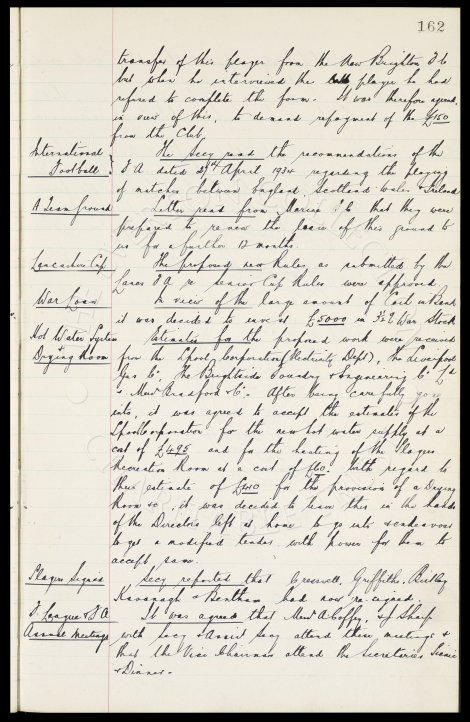 162
transfer of this player from the New Brighton F.C.
but when he interviewed the player he had
refused to complete the form. It was therefore agreed,
in view of this, to demand repayment of the £150
from the Club.
International Football } The Secy read the recommendations of the
F.A. dated 27th April 1934 regarding the playing
of matches between England Scotland Wales & Ireland
A Team Ground Letter read from Marine F.C. that they were
prepared to renew the lease of this ground to
us for a further 12 months.
Lancashire Cup The proposed new Rules, as submitted by the
Lancs F.A. re Senior Cup Rules were approved.
War Loan In view of the large amount of Cash in Bank
it was decided to invest £5000 in 3½% War Stock
Hot Water System & Drying Room Estimates for the proposed work were received
from the L'pool Corporation (Electricity Dept), The Liverpool
Gas Co, The Brightside Foundry & Engineering Co Ld
& Bradford & Co. After being carefully gone
into, it was agreed to accept the estimates of the
L'pool Corporation for the new hot water supply at a
cost of £495 and for the heating of the Players
Recreation Room at a cost of £60. With regard to
their estimate of for the provision of a Drying
Room &c, it was decided to leave this in the hands
of the Directors left at home to go into & endeavour
to get a modified tender, with power for them to
accept same.
Players Signed Secy reported that Cresswell, Griffiths,
Kavanagh & Bentham had now re-signed.
F. League & F.A. Annual Meetings It was agreed that A. Coffey, & Sharp
with Secy & Assist Secy attend these meetings &
that the Vice Chairman attend the Secretaries
& Dinner.